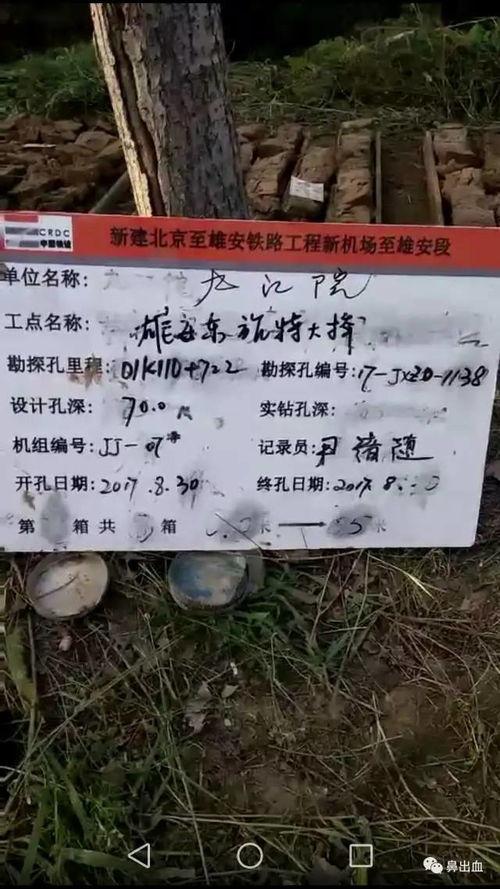 CRDC
中国铁设
新建北京至雄安铁路工程新机场至雄安段
单位名称: 九江院
工点名称: 雄安东旄特大桥
勘探孔里程: 01K110+722 勘探孔编号: 17-JXZD-1138
设计孔深: 70.0 实钻孔深:
机组编号: JJ-07# 记录员: 尹
开孔日期: 2017.8.30 终孔日期: 2017.8.
第 箱共 箱 米 → 米
鼻出血